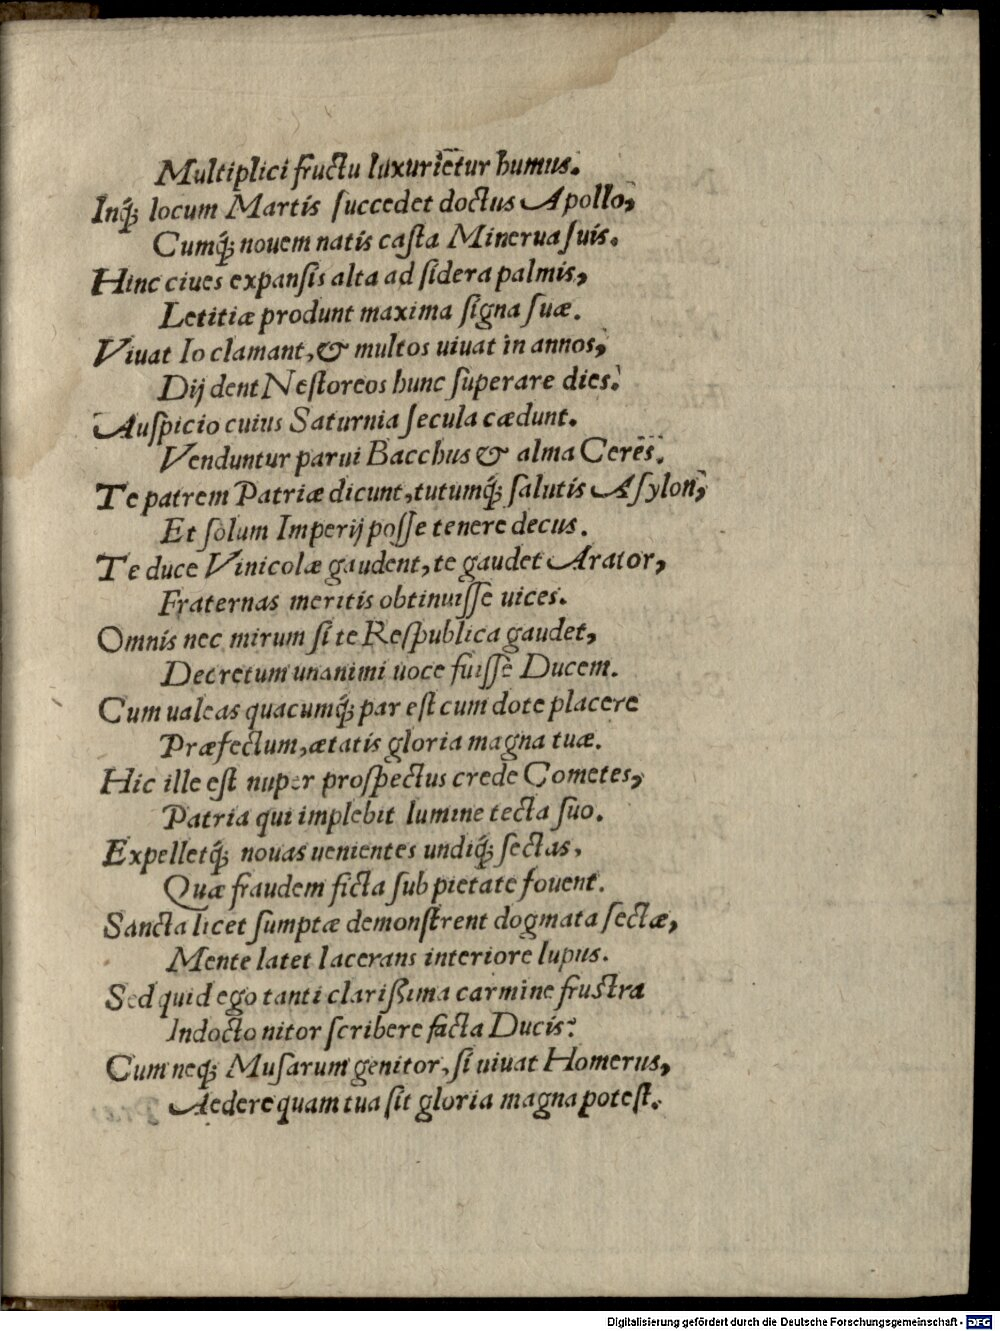 Multiplici fructu luxuriẽtur humus.
Inq́; locum Martis ſuccedet doctus Apollo,
Cumq́; nouem natis caſta Minerua ſuis.
Hinc ciues expanſis alta ad ſidera palmis,
Letitiæ produnt maxima ſigna ſuæ.
Viuat Io clamant, & multos uiuat in annos,
Dij dent Neſtoreos hunc ſuperare dies.
Auſpicio cuius Saturnia ſecula cædunt.
Venduntur parui Bacchus & alma Ceres.
Te patrem Patriæ dicunt, tutumq́; ſalutis Aſylon,
Et ſolum Imperij poſſe tenere decus.
Te duce Vinicolæ gaudent, te gaudet Arator,
Fraternas meritis obtinuiſſe uices.
Omnis nec mirum ſi te Reſpublica gaudet,
Decretum unanimi uoce fuiſſe Ducem.
Cum ualeas quacumq́; par eſt cum dote placere
Præfectum, ætatis gloria magna tuæ.
Hic ille eſt nuper proſpectus crede Cometes,
Patria qui implebit lumine tecta ſuo.
Expelletq́; nouas uenientes undiq́; ſectas,
Quæ fraudem ficta ſub pietate fouent.
Sancta licet ſumptæ demonſtrent dogmata ſectæ,
Mente latet lacerans interiore lupus.
Sed quid ego tanti clarißima carmine fruſtra
Indocto nitor ſcribere facta Ducis?
Cum neq́; Muſarum genitor, ſi uiuat Homerus,
Aedere quam tua ſit gloria magna poteſt.
Digitalisierung gefördert durch die Deutsche Forschungsgemeinschaft - DFG